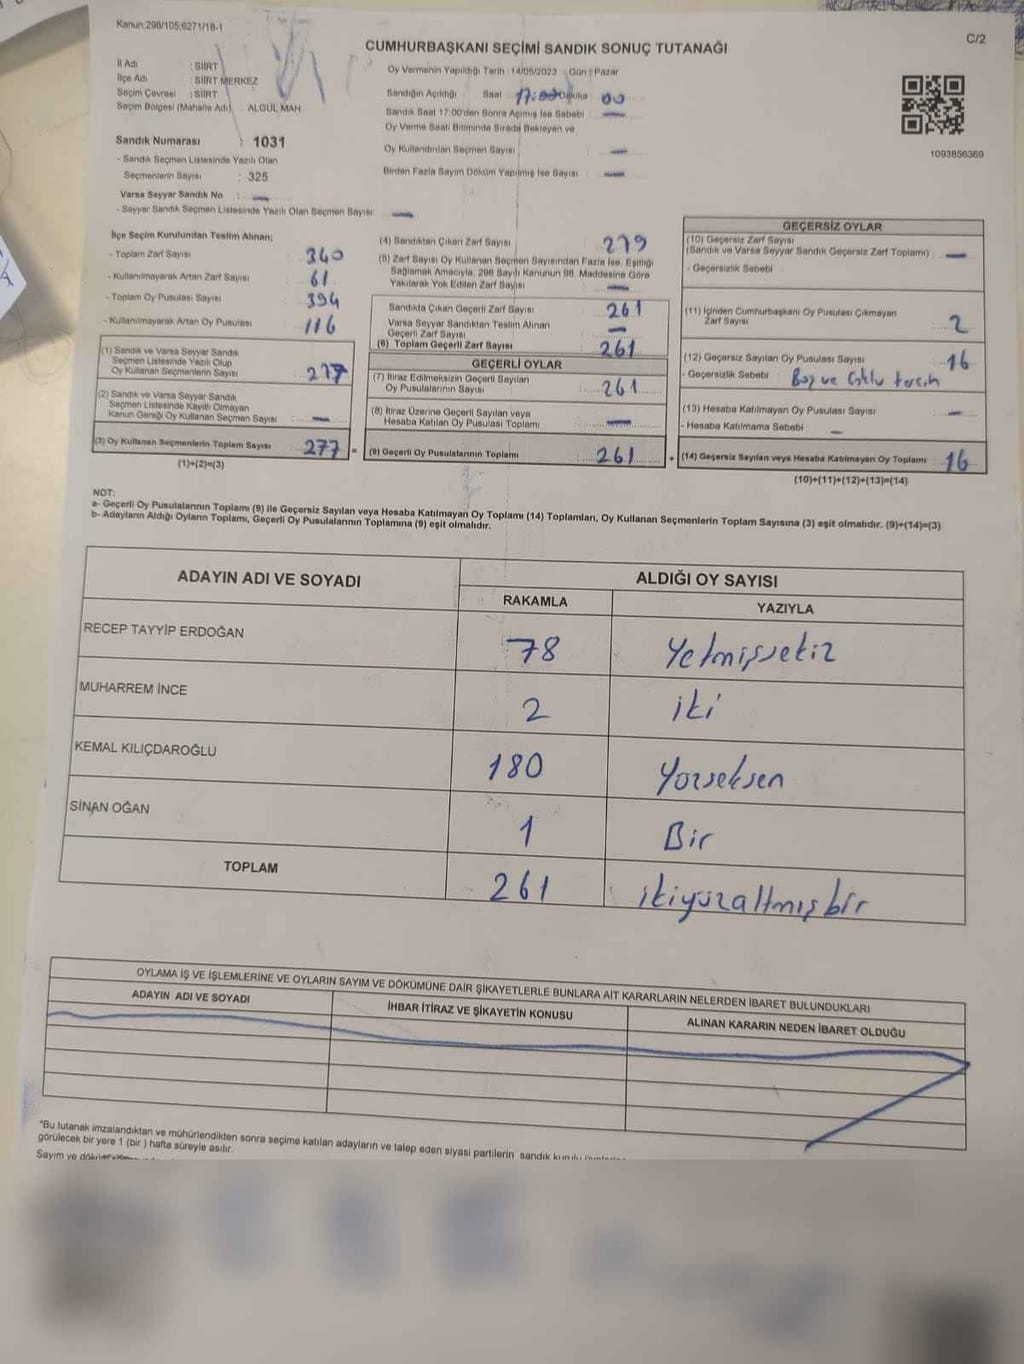 Kanun:298/105;6271/18-1
C/2
CUMHURBAŞKANI SEÇİMİ SANDIK SONUÇ TUTANAĞI
İl Adı : SİİRT
İlçe Adı : SİİRT MERKEZ
Seçim Çevresi : SİİRT
Seçim Bölgesi (Mahalle Adı) : ALGUL MAH
Sandık Numarası : 1031
- Sandık Seçmen Listesinde Yazılı Olan
Seçmenlerin Sayısı : 325
Varsa Seyyar Sandık No : —
- Seyyar Sandık Seçmen Listesinde Yazılı Olan Seçmen Sayısı —
Oy Vermenin Yapıldığı Tarih : 14/05/2023 Gün : Pazar
Sandığın Açıldığı Saat 17:00 Dakika 00
Sandık Saat 17:00'den Sonra Açılmış İse Sebebi : —
Oy Verme Saati Bitiminde Sırada Bekleyen ve
Oy Kullandırılan Seçmen Sayısı : —
Birden Fazla Sayım Döküm Yapılmış İse Sayısı : —
1093856369
İlçe Seçim Kurulundan Teslim Alınan;
- Toplam Zarf Sayısı : 340
- Kullanılmayarak Artan Zarf Sayısı : 61
- Toplam Oy Pusulası Sayısı : 394
- Kullanılmayarak Artan Oy Pusulası : 116
(1) Sandık ve Varsa Seyyar Sandık
Seçmen Listesinde Yazılı Olup
Oy Kullanan Seçmenlerin Sayısı : 277
(2) Sandık ve Varsa Seyyar Sandık
Seçmen Listesinde Kayıtlı Olmayan
Kanun Gereği Oy Kullanan Seçmen Sayısı : —
(3) Oy Kullanan Seçmenlerin Toplam Sayısı : 277 =
(1)+(2)=(3)
(4) Sandıktan Çıkan Zarf Sayısı : 279
(5) Zarf Sayısı Oy Kullanan Seçmen Sayısından Fazla İse, Eşitliği
Sağlamak Amacıyla, 298 Sayılı Kanunun 98. Maddesine Göre
Yakılarak Yok Edilen Zarf Sayısı : —
Sandıkta Çıkan Geçerli Zarf Sayısı : 261
Varsa Seyyar Sandıktan Teslim Alınan
Geçerli Zarf Sayısı : —
(6) Toplam Geçerli Zarf Sayısı : 261
GEÇERLİ OYLAR
(7) İtiraz Edilmeksizin Geçerli Sayılan
Oy Pusulalarının Sayısı : 261
(8) İtiraz Üzerine Geçerli Sayılan veya
Hesaba Katılan Oy Pusulası Toplamı : —
(9) Geçerli Oy Pusulalarının Toplamı : 261 +
GEÇERSİZ OYLAR
(10) Geçersiz Zarf Sayısı
(Sandık ve Varsa Seyyar Sandık Geçersiz Zarf Toplamı) : —
- Geçersizlik Sebebi :
(11) İçinden Cumhurbaşkanı Oy Pusulası Çıkmayan
Zarf Sayısı : 2
(12) Geçersiz Sayılan Oy Pusulası Sayısı : 16
- Geçersizlik Sebebi : Boş ve çoklu tercih
(13) Hesaba Katılmayan Oy Pusulası Sayısı : —
- Hesaba Katılmama Sebebi : —
(14) Geçersiz Sayılan veya Hesaba Katılmayan Oy Toplamı : 16
(10)+(11)+(12)+(13)=(14)
NOT:
a- Geçerli Oy Pusulalarının Toplamı (9) ile Geçersiz Sayılan veya Hesaba Katılmayan Oy Toplamı (14) Toplamları, Oy Kullanan Seçmenlerin Toplam Sayısına (3) eşit olmalıdır. (9)+(14)=(3)
b- Adayların Aldığı Oyların Toplamı, Geçerli Oy Pusulalarının Toplamına (9) eşit olmalıdır.
ADAYIN ADI VE SOYADI ALDIĞI OY SAYISI
RAKAMLA YAZIYLA
RECEP TAYYİP ERDOĞAN 78 Yetmişsekiz
MUHARREM İNCE 2 iki
KEMAL KILIÇDAROĞLU 180 Yüzseksen
SİNAN OĞAN 1 Bir
TOPLAM 261 ikiyüzaltmışbir
OYLAMA İŞ VE İŞLEMLERİNE VE OYLARIN SAYIM VE DÖKÜMÜNE DAİR ŞİKAYETLERLE BUNLARA AİT KARARLARIN NELERDEN İBARET BULUNDUKLARI
ADAYIN ADI VE SOYADI İHBAR İTİRAZ VE ŞİKAYETİN KONUSU ALINAN KARARIN NEDEN İBARET OLDUĞU
*Bu tutanak imzalandıktan ve mühürlendikten sonra seçime katılan adayların ve talep eden siyasi partilerin sandık kurulu
görülecek bir yere 1 (bir) hafta süreyle asılır.
Sayım ve